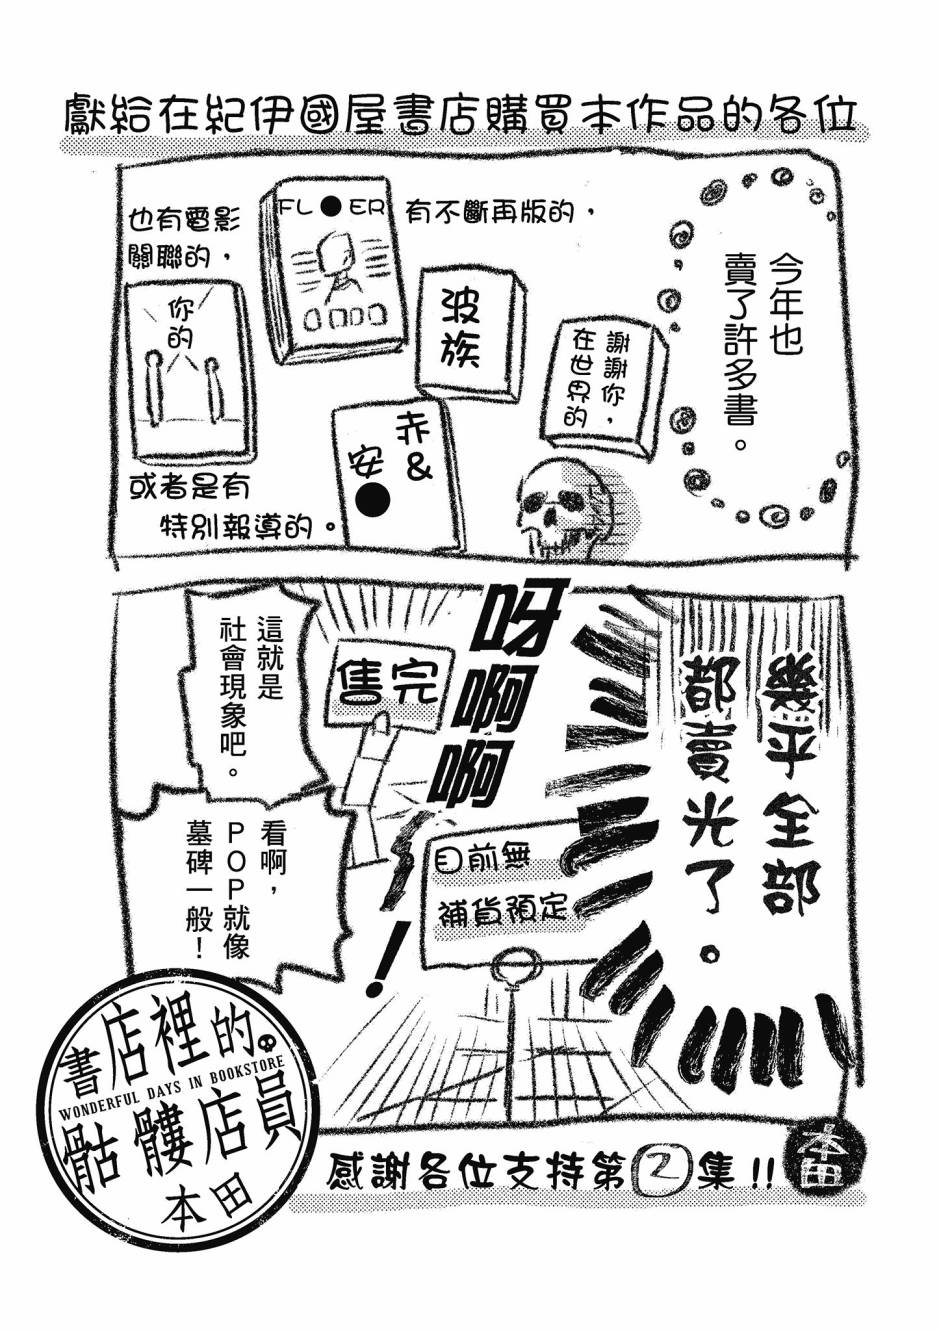 獻給在紀伊國屋書店購買本作品的各位
今年也
賣了許多書。
有不斷再版的，
FL●ER
也有電影
關聯的，
你的
波族
謝謝你，
在世界的
赤&
安●
或者是有
特別報導的。
幾乎全部
都賣光了。
呀啊啊
！
售完
目前無
補貨預定
這就是
社會現象吧。
看啊，
POP就像
墓碑一般！
書店裡的
WONDERFUL DAYS IN BOOKSTORE
骷髏店員
本田
感謝各位支持第2集!!
本田